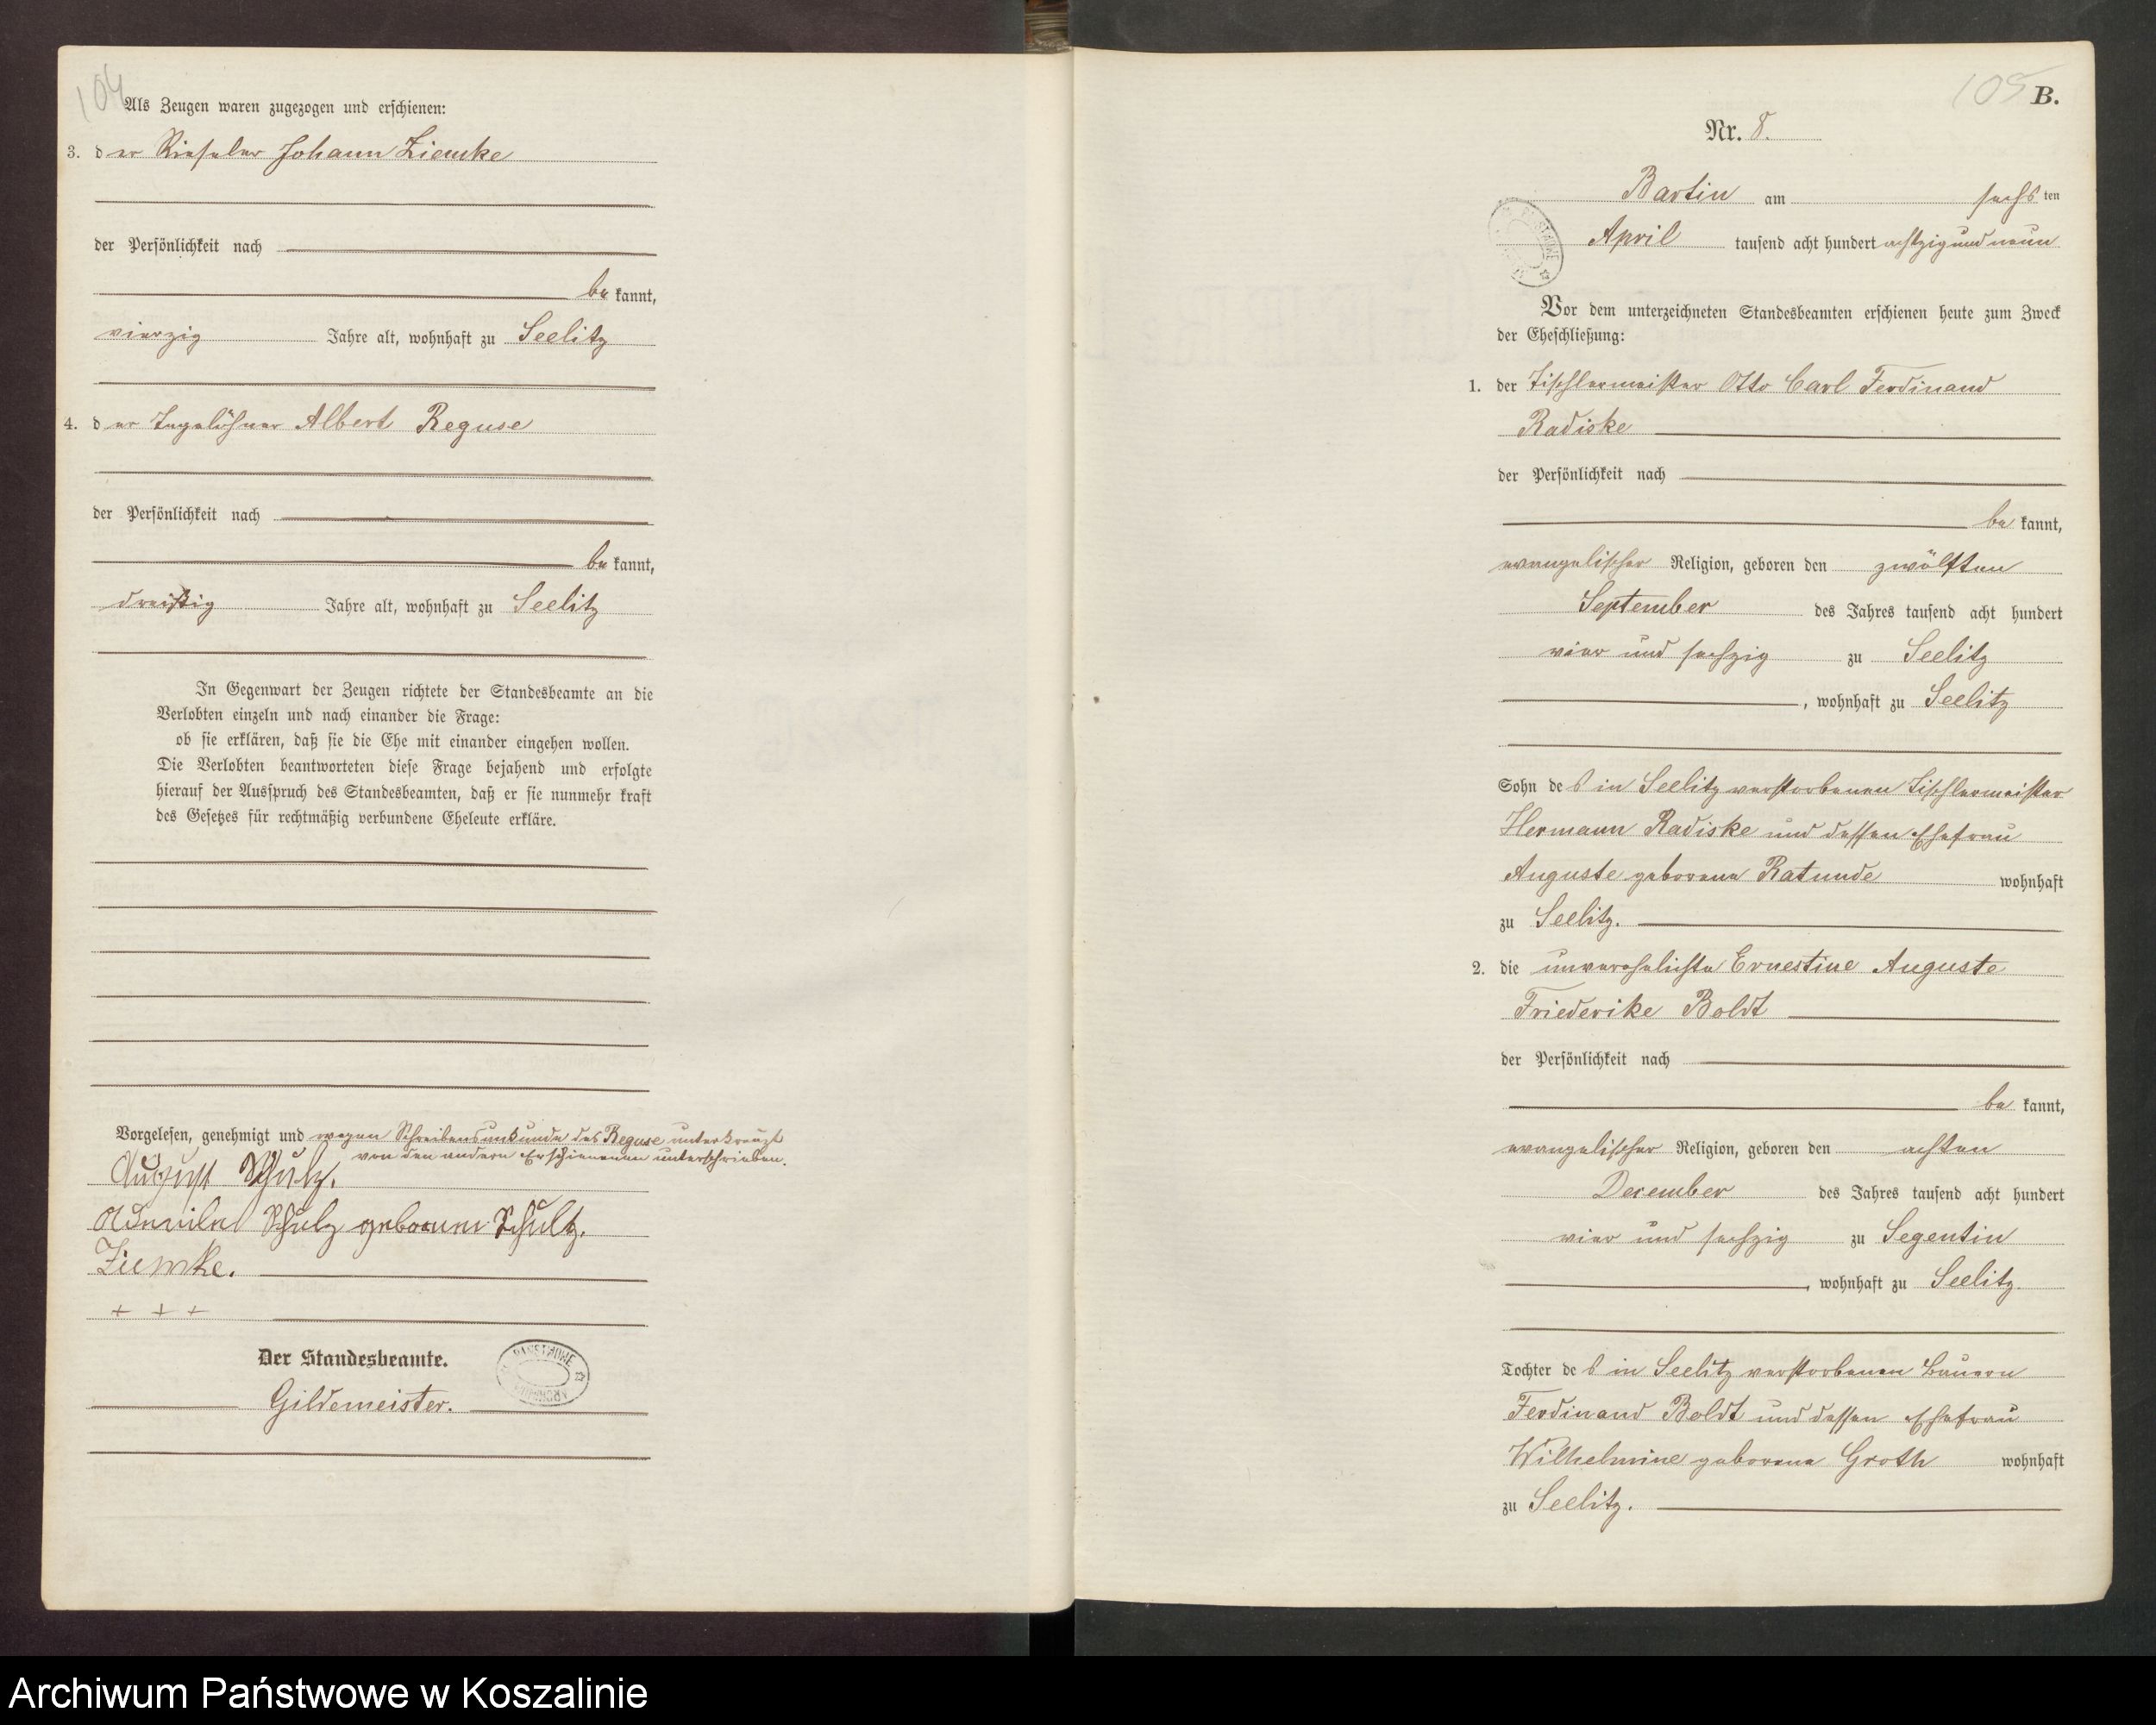 104
Als Zeugen waren zugezogen und erschienen:
3. der Rieseler Johann Ziemke
der Persönlichkeit nach
bekannt,
vierzig Jahre alt, wohnhaft zu Seelitz
4. der Tagelöhner Albert Reguse
der Persönlichkeit nach
bekannt,
dreißig Jahre alt, wohnhaft zu Seelitz
In Gegenwart der Zeugen richtete der Standesbeamte an die
Verlobten einzeln und nach einander die Frage:
ob sie erklären, daß sie die Ehe mit einander eingehen wollen.
Die Verlobten beantworteten diese Frage bejahend und erfolgte
hierauf der Ausspruch des Standesbeamten, daß er sie nunmehr kraft
des Gesetzes für rechtmäßig verbundene Eheleute erkläre.
Vorgelesen, genehmigt und wegen Schreibensunkunde des Reguse unterkreuzt
von den andern Erschienenen unterschrieben.
August Schulz.
Schulz geborene Schultz.
Ziemke.
+ + +
Der Standesbeamte.
Gildemeister.
105 B.
Nr. 8.
Bartin am sechsten
April tausend acht hundert achtzig und neun
Vor dem unterzeichneten Standesbeamten erschienen heute zum Zweck
der Eheschließung:
1. der Tischlermeister Otto Carl Ferdinand
Radiske
der Persönlichkeit nach
bekannt,
evangelischer Religion, geboren den zwölften
September des Jahres tausend acht hundert
vier und sechzig zu Seelitz
, wohnhaft zu Seelitz
Sohn des in Seelitz verstorbenen Tischlermeister
Hermann Radiske und dessen Ehefrau
Auguste geborene Ratunde wohnhaft
zu Seelitz.
2. die unverehelichte Ernestine Auguste
Friederike Boldt
der Persönlichkeit nach
bekannt,
evangelischer Religion, geboren den achten
December des Jahres tausend acht hundert
vier und sechzig zu Segentin
, wohnhaft zu Seelitz.
Tochter des in Seelitz verstorbenen Bauern
Ferdinand Boldt und dessen Ehefrau
Wilhelmine geborene Groth wohnhaft
zu Seelitz.
Archiwum Państwowe w Koszalinie